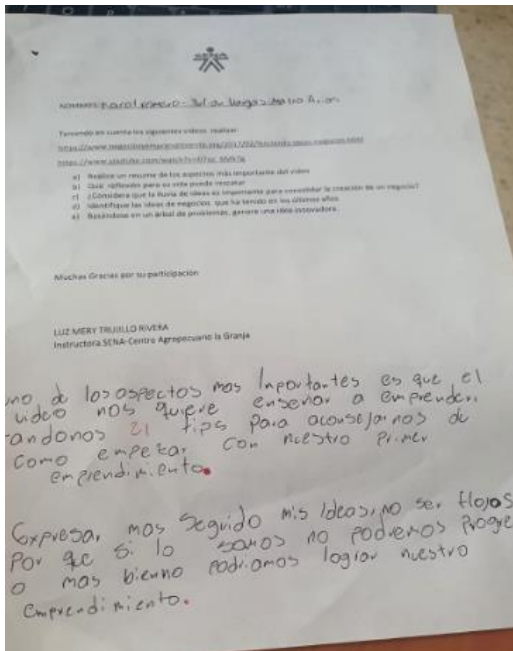 SENA
NOMBRES: Karol romero - Julian Vargas - Mateo
Teniendo en cuenta los siguientes videos realizar
a) Realice un resume de los aspectos más importante del video
b) Qué reflexión para su vida puede rescatar
c) ¿Considera que la lluvia de ideas es importante para consolidar la creación de un negocio?
d) Identifique las ideas de negocios, que ha tenido en los últimos años
e) Basándose en un árbol de problemas, genere una idea innovadora.
Muchas Gracias por su participación
LUZ MERY TRUJILLO RIVERA
Instructora SENA-Centro Agropecuario la Granja
uno de los aspectos mas Inportantes es que el
video nos quiere enseñar a emprender.
andonos 21 tips para aconsejarnos de
como empezar con nuestro primer
emprendimiento.
Expresar mas seguido mis ideas, no ser flojos
Por qe si lo somos no podremos progre
o mas bienno podriamos lograr nuestro
emprendimiento.